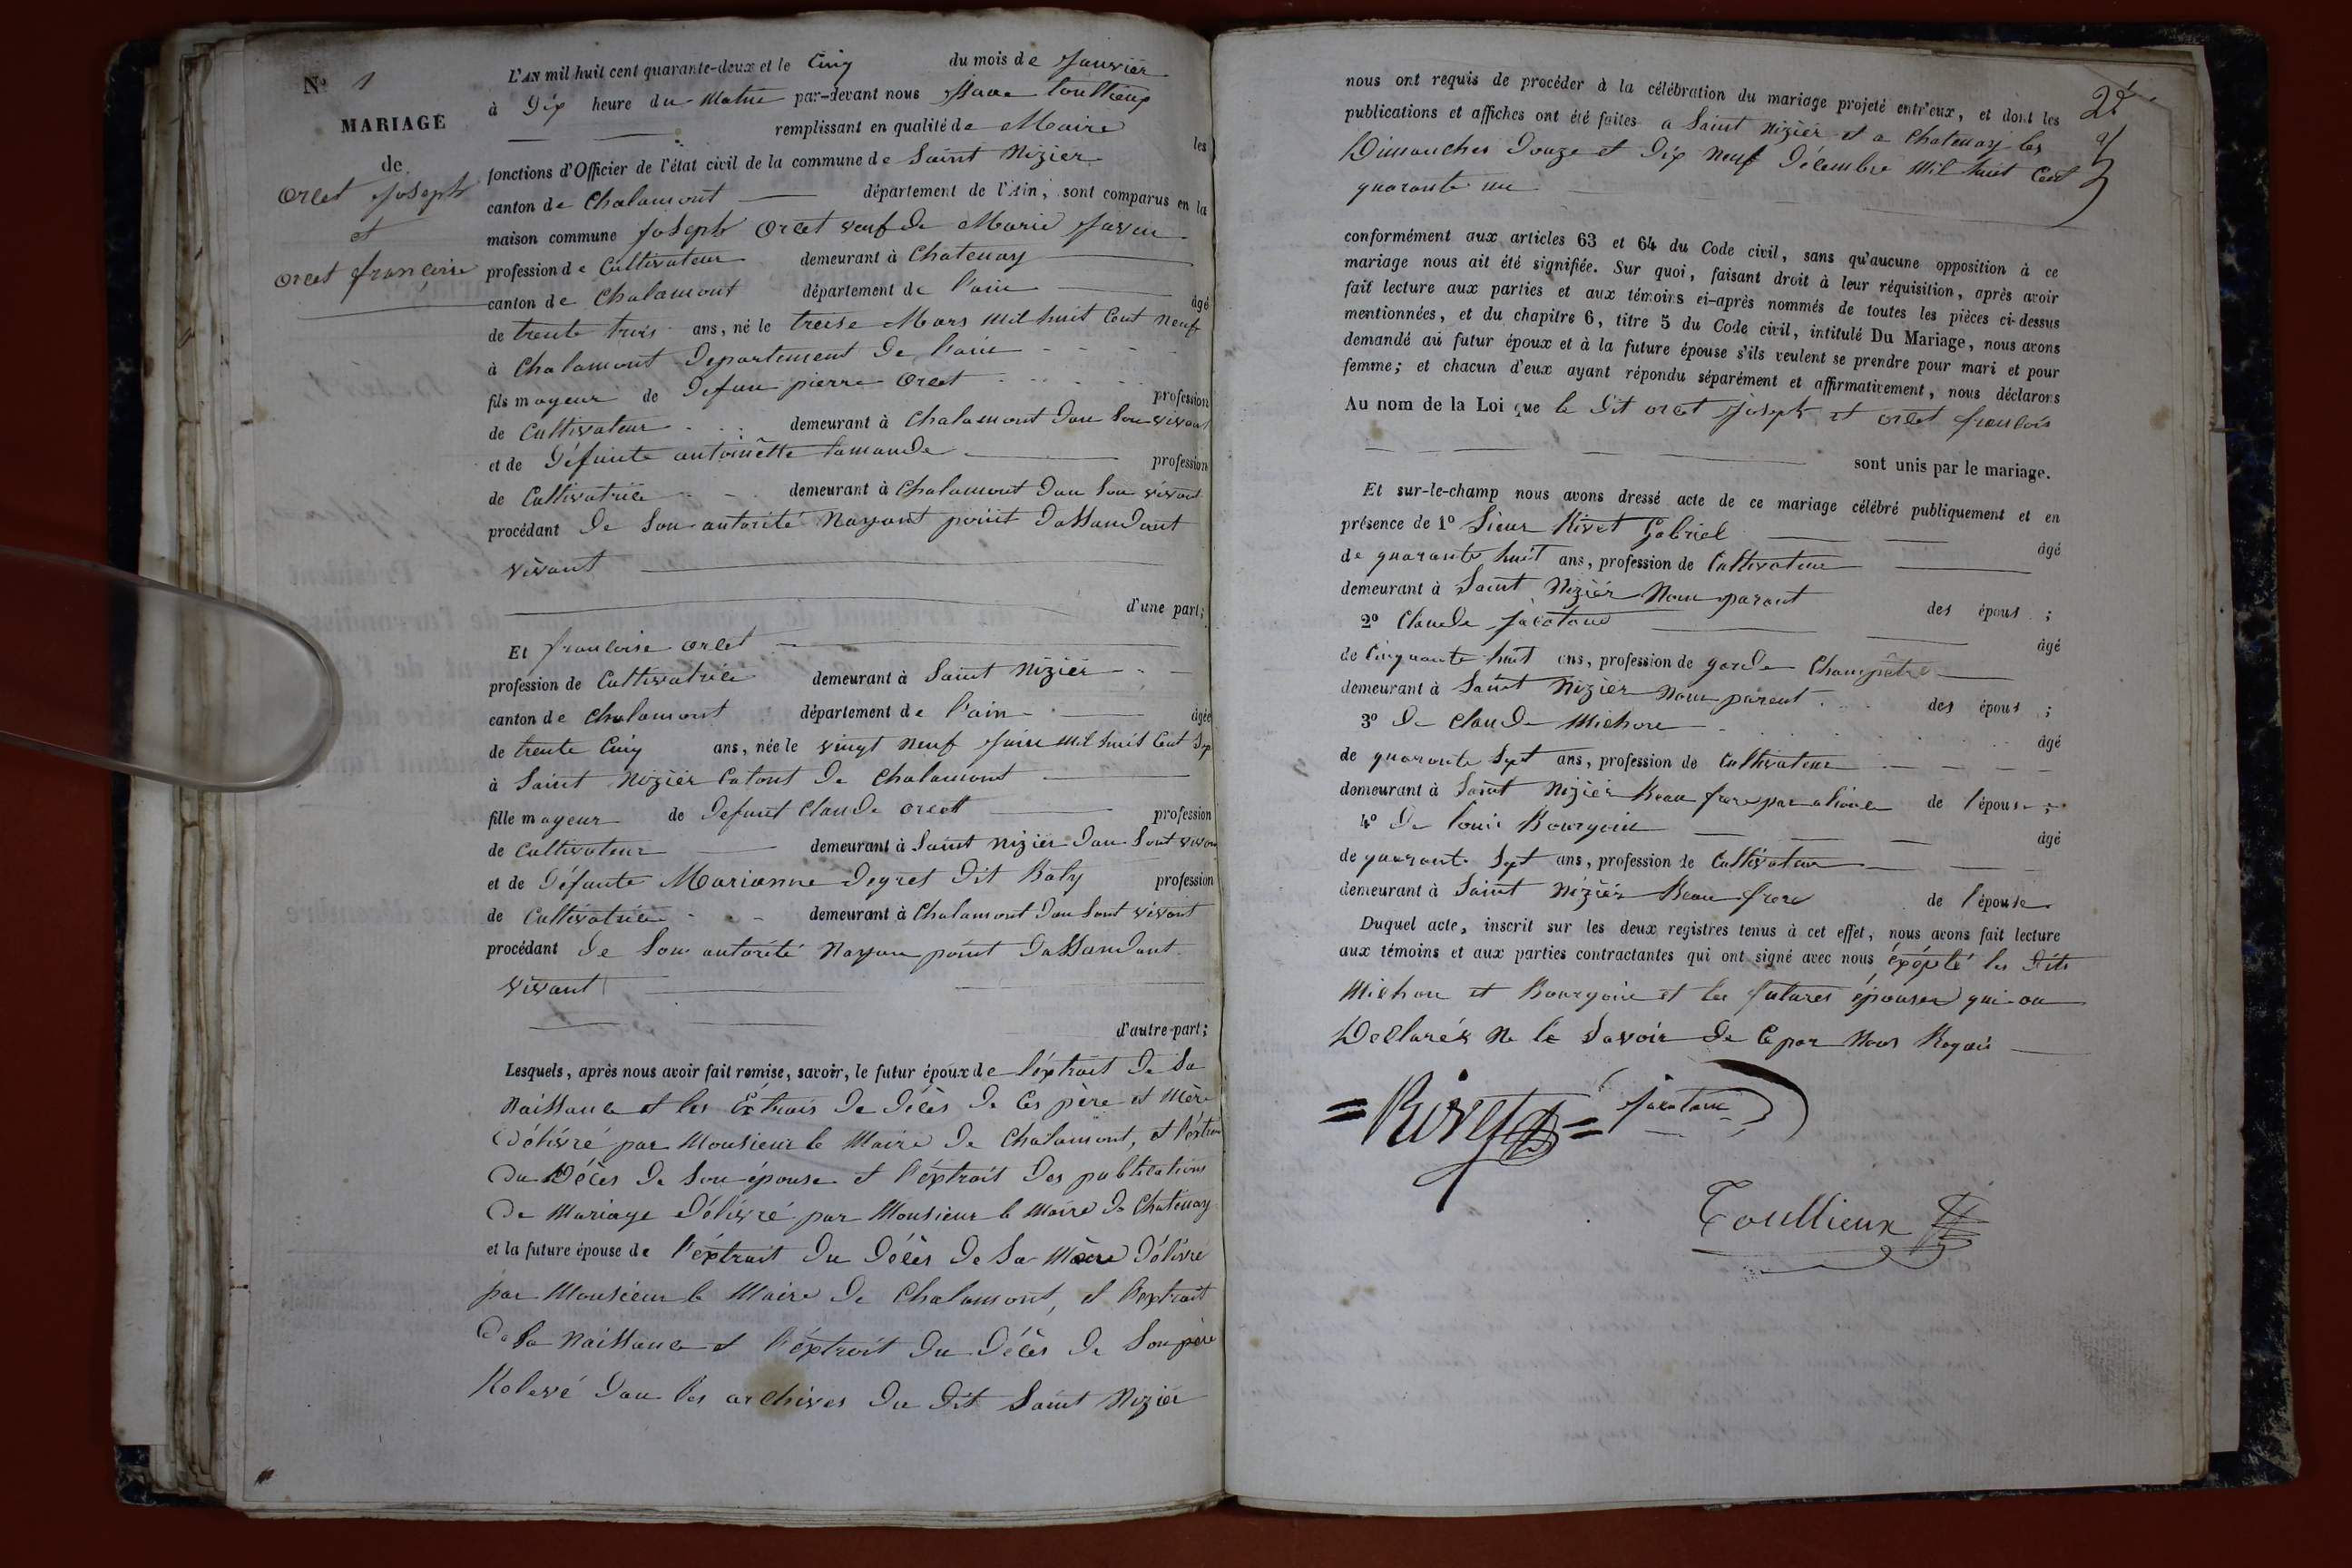 N° 1
MARIAGE
de
orcet Joseph
et
orcet françoise
L'AN mil huit cent quarante-deux et le Cinq du mois de Janvier
à Dix heure du Matin par-devant nous toullieux
remplissant en qualité de Maire les
fonctions d'Officier de l'état civil de la commune de Saint Nizier
canton de Chalamont département de l'Ain, sont comparus en la
maison commune Joseph Orcet veuf de Marie
profession de Cultivateur demeurant à Chatenay
canton de Chalamont département de l'ain âgé
de trente trois ans, né le treise Mars mil huit Cent Neuf
à Chalamont Departement De l'ain
fils mayeur de Defun pierre Orcet profession
de Cultivateur demeurant à Chalamont Dan Son vivant
et de Défunte antoinêtte lamande profession
de Cultivatrice demeurant à Chalamont Dan Son vivant
procédant De Son autorité Nayant point Dassandant
vivant
d'une part;
Et françoise orcet
profession de Cultivatrice demeurant à Saint Nizier
canton de Chalamont département de l'ain âgée
de trente Cinq ans, née le vingt Neuf Juin mil huit Cent Sep
à Saint Nizier Catont De Chalamont
fille mayeur de Defunt Claude orcett profession
de Cultivateur demeurant à Saint Nizier Dan Sont vivan
et de Défunte Marianne Degret Dit Baly profession
de Cultivatrice demeurant à Chalamont Dan Sont vivant
procédant De Son autorité Nayan point Dassandant
vivant
d'autre part;
Lesquels, après nous avoir fait remise, savoir, le futur époux de l'éxtrait De Sa
Naissance et les Extrais De décès De Ces père et Mère
Délivré par Monsieur le Maire De Chalamont, et l'extrai
Du Décès De Son épouse et l'éxtrait Des publications
De Mariage Délivré par Monsieur le Maire De Chatenay
et la future épouse de l'éxtrait Du Décès De Sa Mère Délivré
par Monsieur le Maire De Chalamont, et l'extrait
De Sa Naissance et l'éxtrait Du Décès De Son père
Relevé Dan les archives Du Dit Saint Nizier
2
nous ont requis de procéder à la célébration du mariage projeté entr'eux, et dont les
publications et affiches ont été faites a Saint Nizier et a Chatenay les
Dimanches Douze et Dix neuf Décembre Mil huit Cent
quarante un
conformément aux articles 63 et 64 du Code civil, sans qu'aucune opposition à ce
mariage nous ait été signifiée. Sur quoi, faisant droit à leur réquisition, après avoir
fait lecture aux parties et aux témoins ci-après nommés de toutes les pièces ci-dessus
mentionnées, et du chapitre 6, titre 5 du Code civil, intitulé Du Mariage, nous avons
demandé au futur époux et à la future épouse s'ils veulent se prendre pour mari et pour
femme; et chacun d'eux ayant répondu séparément et affirmativement, nous déclarons
Au nom de la Loi que le Dit orcet Joseph et orcet
sont unis par le mariage.
Et sur-le-champ nous avons dressé acte de ce mariage célébré publiquement et en
présence de 1° Sieur Rivet Gabriel âgé
de quarante huit ans, profession de Cultivateur
demeurant à Saint Nizier Non parant des épous ;
2° Claude âgé
de Cinquante huit ans, profession de garde Champêtre
demeurant à Saint Nizier Non parent des épous ;
3° De Claude Michon âgé
de quarante Sept ans, profession de Cultivateur
demeurant à Saint Nizier Beau frere par aliance de l'épouse ;
4° De Louis Bourgoin âgé
de quarante Sept ans, profession de Cultivateur
demeurant à Saint Nizier Beau frere de l'épouse
Duquel acte, inscrit sur les deux registres tenus à cet effet, nous avons fait lecture
aux témoins et aux parties contractantes qui ont signé avec nous les Dits
Michon et Bourgoin et les futures épouser qui on
Declarés Ne le Savoir De Ce par Nous
Rivet
Toullieux